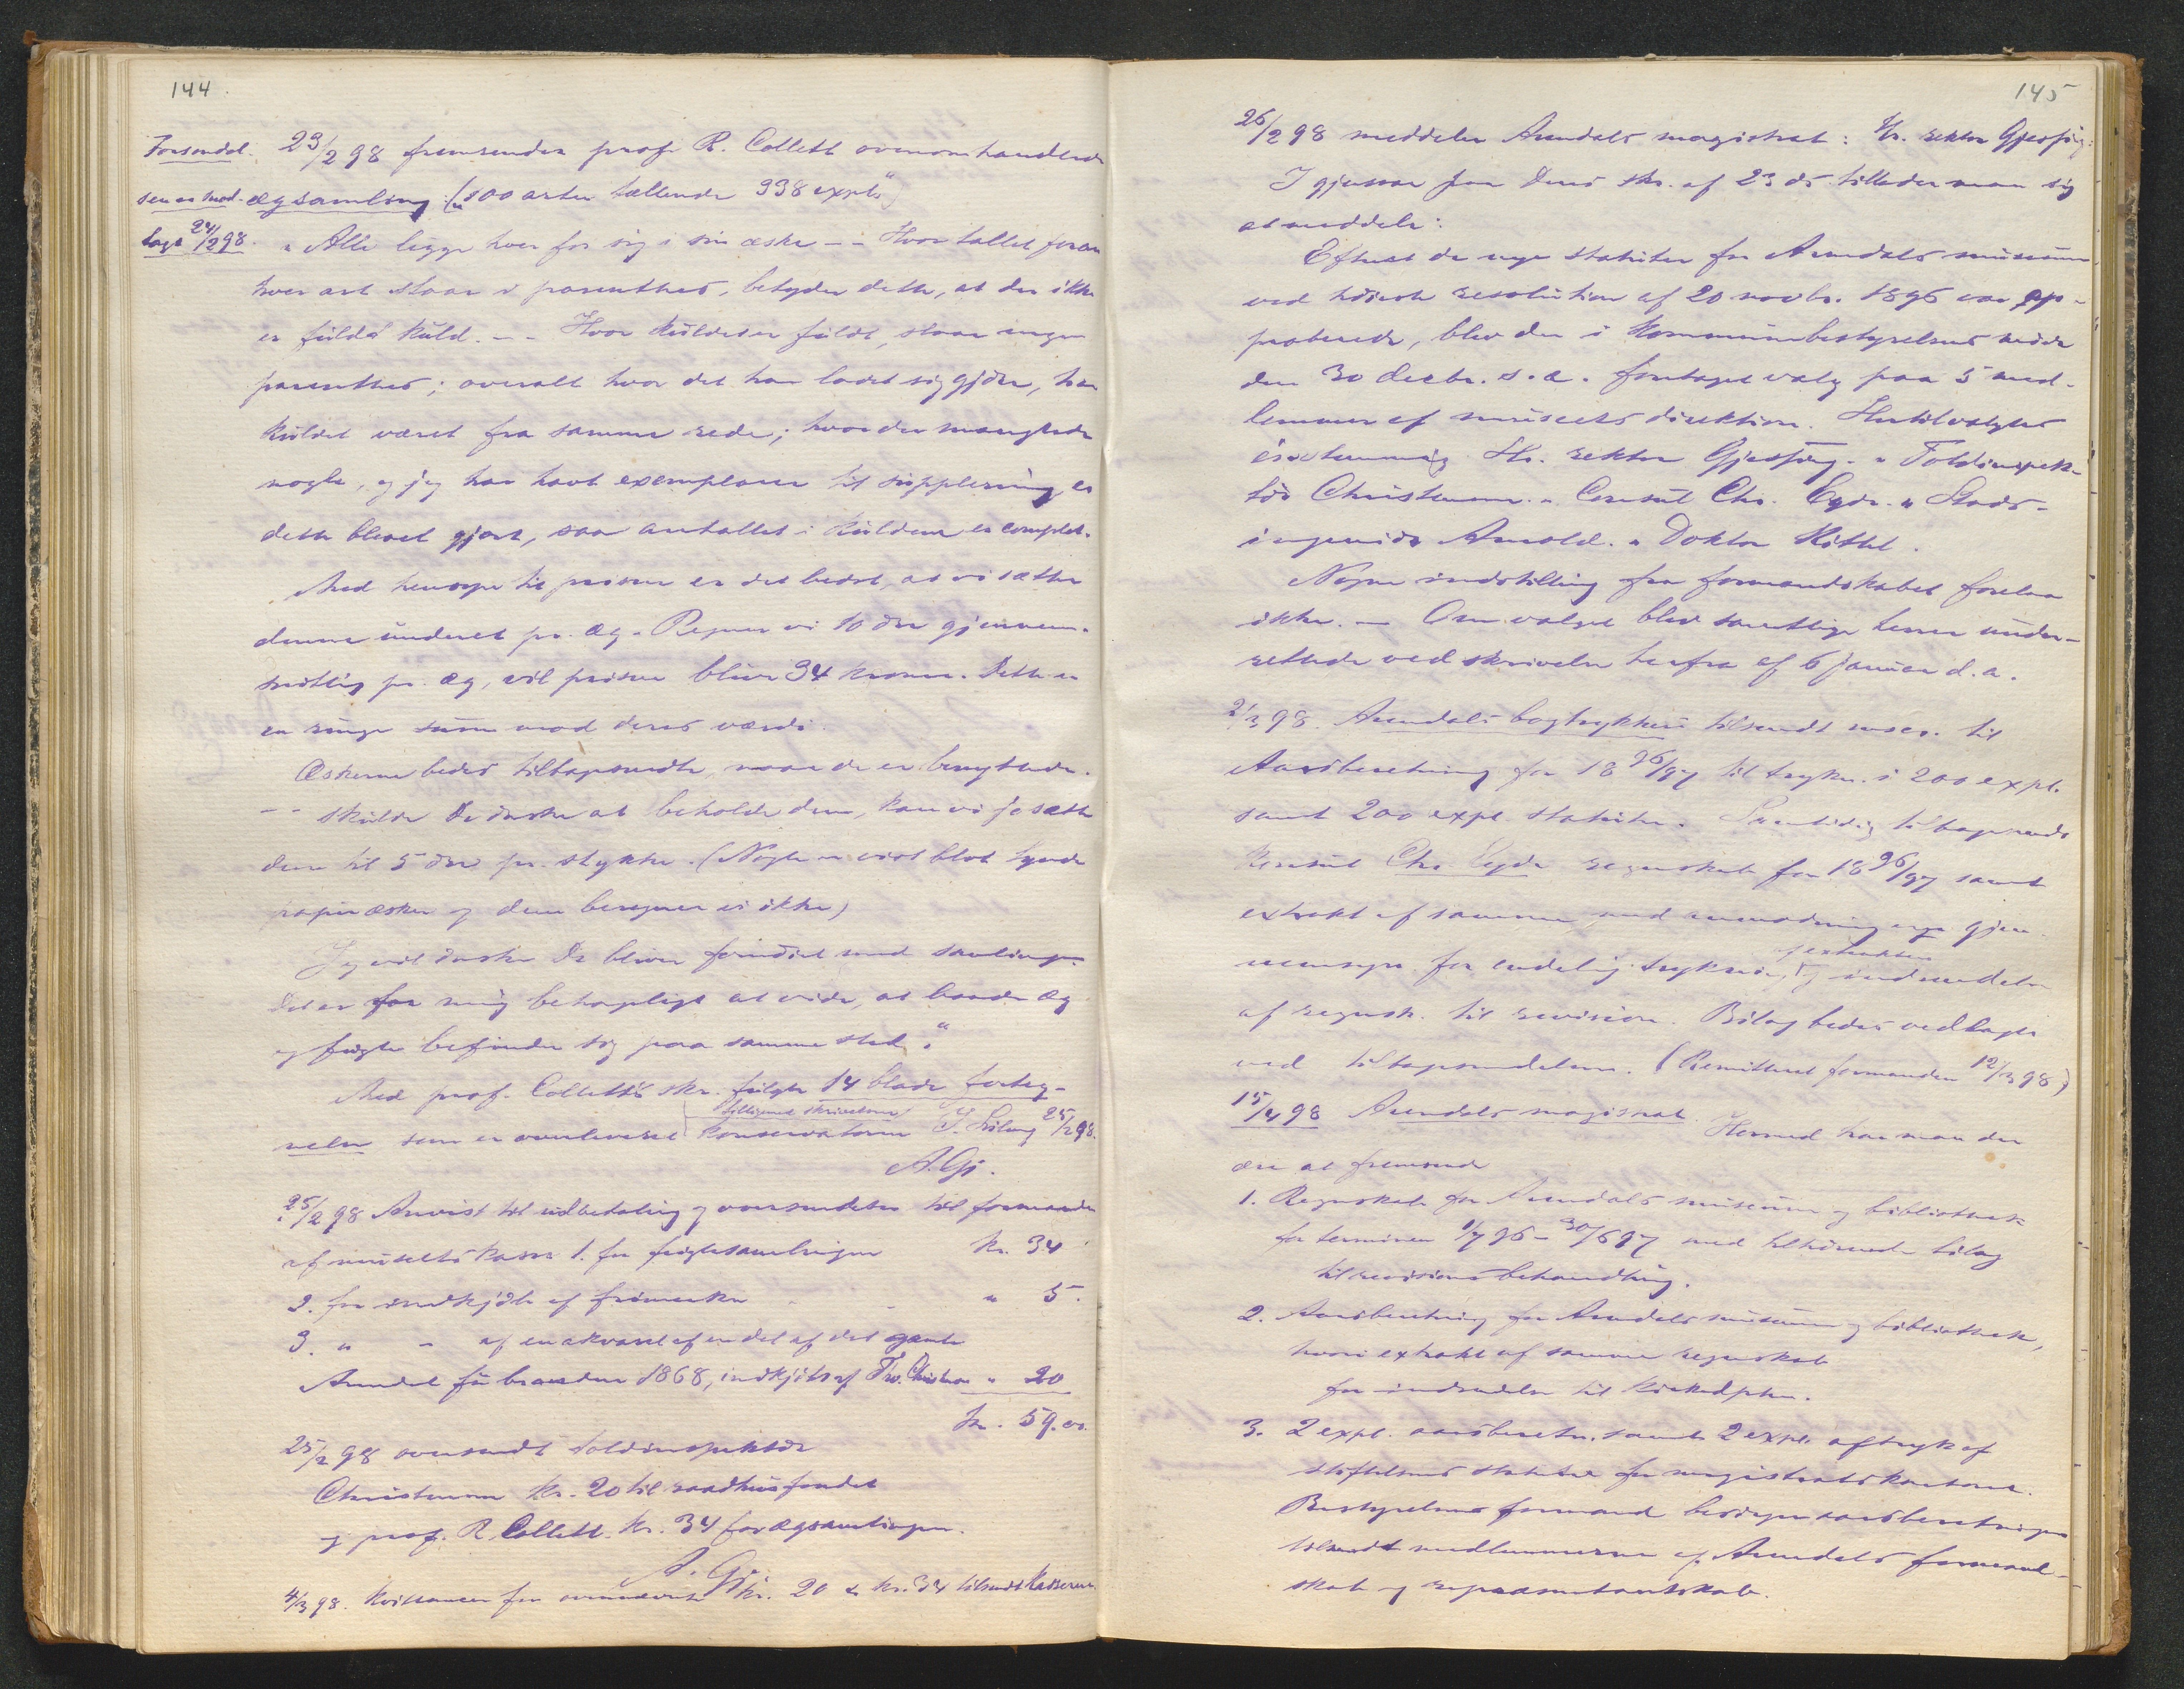 144.
Forsendel- 23/2 98 fremsender prof. R. Collett ovenomhandlede
sen er mod- ægsamling („100 arter tællende 338 expl.“)
taget 24/2 98. „Alle ligge hver for sig i sin æske -- Hvor tallet foran
hver art staar i parenthes, betyder dette, at der ikke
er fuldt kuld. -- Hvor kuldet er fuldt, staar ingen
parenthes; overalt hvor det har ladet sig gjøre, har
kuldet været fra samme rede; hvor der manglede
nogle, og jeg har havt exemplarer til supplering, er
dette blevet gjort, saa antallet i kuldene er complet.
Med hensyn til prisen er det bedst, at vi sætter
denne under et pr. æg. Regner vi 10 øre gjennem-
snitlig pr. æg, vil prisen blive 34 kroner. Dette er
en ringe sum mod deres værdi.
Æskerne bedes tilbagesendte, naar de er benyttede.
-- skulde De ønske at beholde dem, kan vi jo sætte
dem til 5 øre pr. stykke. (Nogle er vist blot tynde
papiræsker og dem beregner vi ikke)
Jeg vil ønske De bliver fornøiet med samlingen.
Det er for mig behageligt at vide, at baade æg
og fugle befinder sig paa samme sted.“
Med prof. Colletts skr. fulgte 14 blade forteg-
tilligemed skrivelsen
nelse som er overleveret konservatoren 25/2 98.
A. Gj.
25/2 98 Anvist til udbetaling og oversendelse til formanden
af museets kasse 1. for fuglesamlingen kr. 34
2. for indkjøb af frimerker " 5.
3. " - af en akvarel af en del af det gamle
Arendal før branden 1868, indkjøbt af Christensen " 20
kr. 59.00.
25/2 98 oversendt toldinspektør
Christensen kr. 20 til raadhusfondet
og prof. R. Collett kr. 34 for ægsamlingen.
A. Gj.
4/3 98. Kvittancer for ovennævnte kr. 20 & kr. 34 tilsendt kassereren
145
26/2 98 meddeler Arendals magistrat: Hr. rektor Gjessing:
I gjensvar paa Deres skr. af 23 ds. tillader man sig
at meddele:
Efterat de nye statuter for Arendals museum
ved høieste resolution af 20 novbr. 1896 var ap-
proberede, blev der i kommunebestyrelsens møde
den 30 decbr. s. a. foretaget valg paa 5 med-
lemmer af museets direktion. Hertil valgtes
enstemmig Hr. rektor Gjessing. " Toldinspek-
tør Christensen. " Consul Chr. Eyde. " Stads-
ingeniør Arnold. " Doktor Kittel.
Nogen indstilling fra formandskabet forelaa
ikke. — Om valget blev samtlige herrer under-
rettede ved skrivelse herfra af 6 januar d. a.
2/3 98. Arendals bogtrykkeri tilsendt mscr. til
Aarsberetning for 1896/97 til trykn. i 200 expl.
samt 200 expl. statuter. Samtidig tilbagesendt
konsul Chr. Eyde regnskab for 1896/97 samt
extrakt af samme med anmodning om gjen-
af extrakten
nemsyn før endelig trykning og indsendelse
af regnsk. til revision. Bilag bedes vedlagte
ved tilbagesendelsen. (Remitteret formanden 12/3 98)
15/4 98 Arendals magistrat. Hermed har man den
ære at fremsende
1. Regnskab for Arendals museum og bibliothek
for terminen 1/7 96 – 30/6 97 med tilhørende bilag
til revisionsbehandling.
2. Aarsberetning for Arendals museum og bibliothek,
hvori extrakt af samme regnskab
for indsendelse til kirkedptm.
3. 2 expl. aarsberetn. samt 2 expl. aftryk af
stiftelsens statuter for magistratskontoret.
Bestyrelsens formand besørger aarsberetningen
tilsendt medlemmerne af Arendals formand-
skab og repræsentantskab.